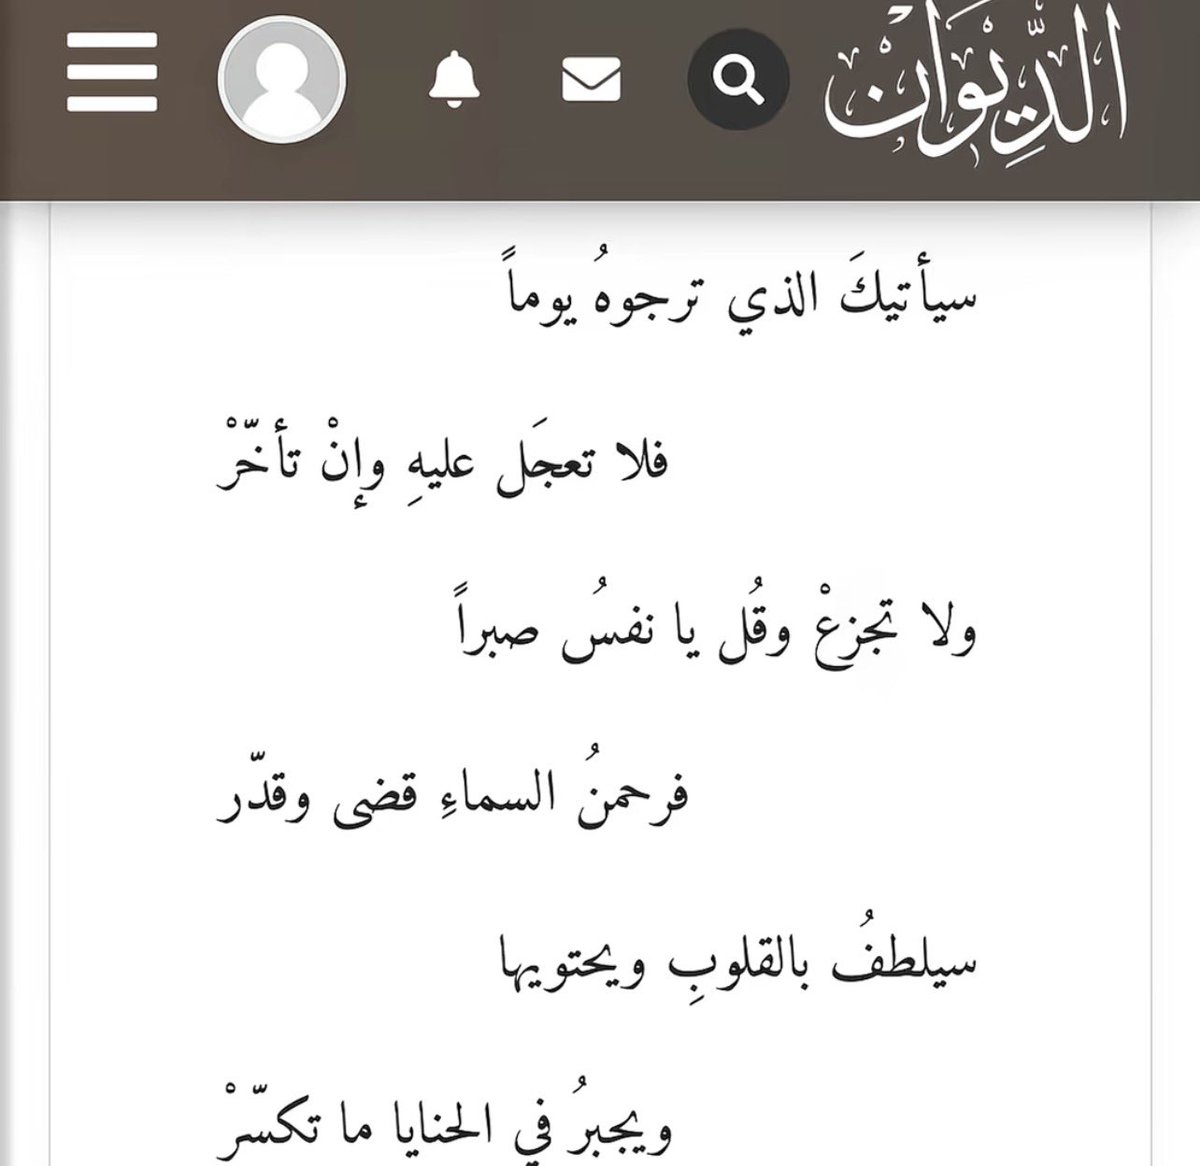 الدِّيوَانْ
سيأتيكَ الذي ترجوهُ يوماً
فلا تعجَل عليهِ وإنْ تأخّرْ
ولا تجزعْ وقُل يا نفسُ صبراً
فرحمنُ السماءِ قضى وقدّر
سيلطفُ بالقلوبِ ويحتويها
ويجبرُ في الحنايا ما تكسّرْ